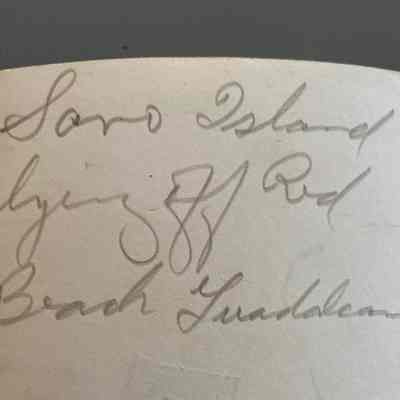 Savo Island
lying off Red
Beach Guadalcan